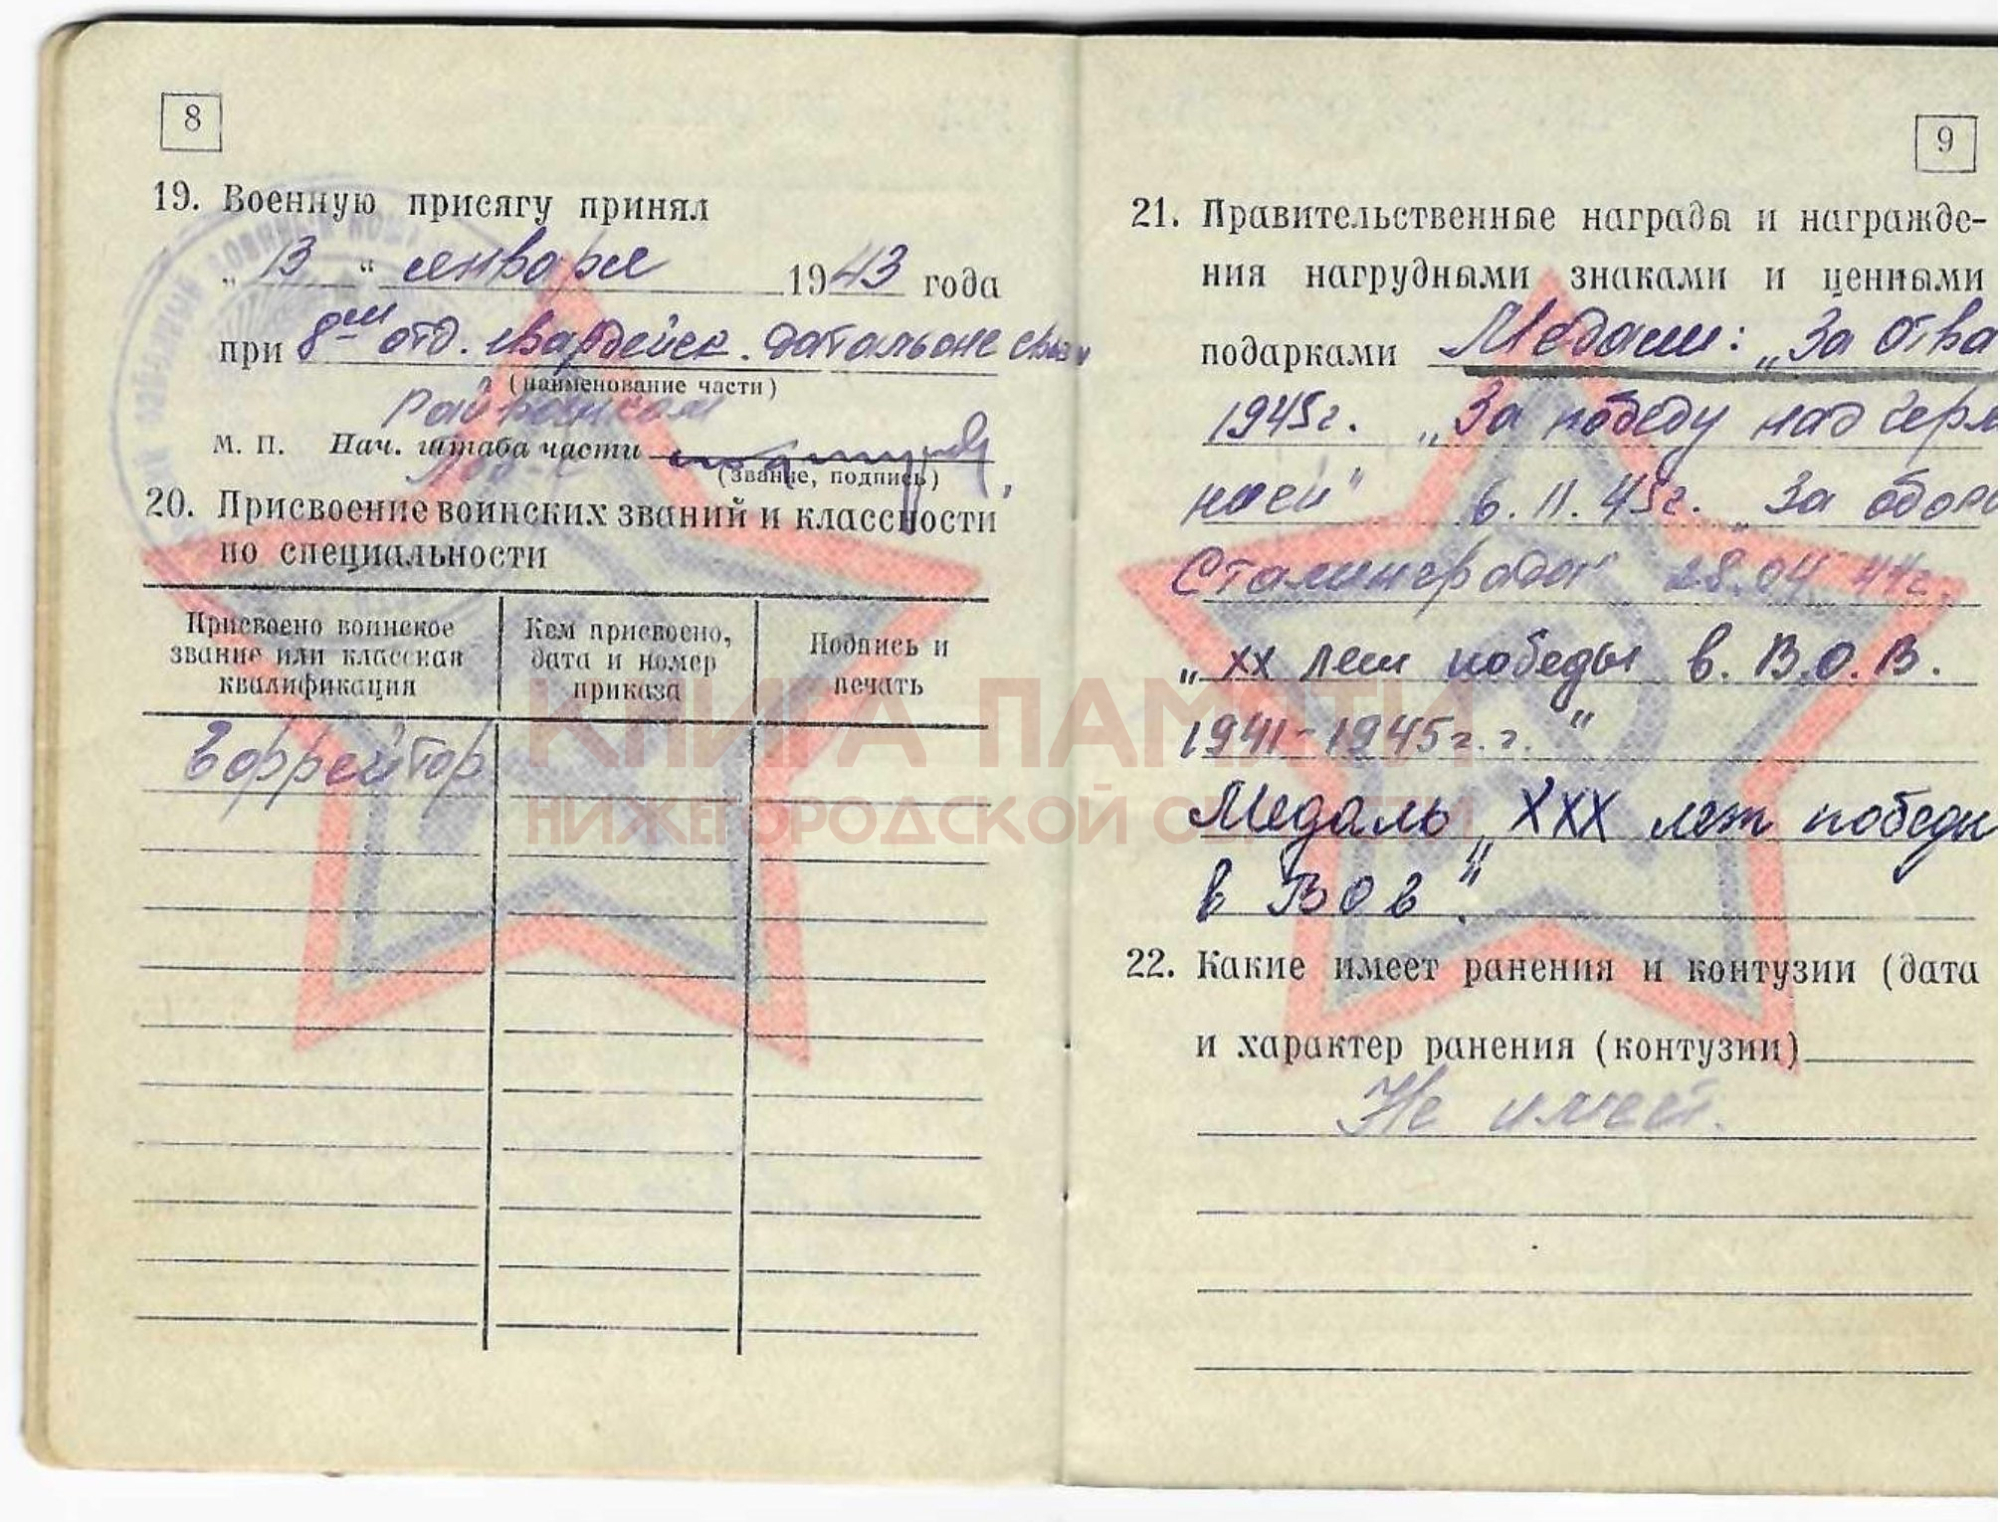 8
19. Военную присягу принял
„13“ января 1943 года
при 8ом отд. гвардейск. батальоне связи
(наименование части)
Райвоенком
М. П. Нач. штаба части
(звание, подпись)
20. Присвоение воинских званий и классности
по специальности
Присвоено воинское
звание или классная
квалификация
Кем присвоено,
дата и номер
приказа
Подпись и
печать
Ефрейтор
9
21. Правительственные награды и награжде-
ния нагрудными знаками и ценными
подарками Медали: „За отва
1945г. „За победу над Герм
нией" 6.11.45г. „За оборо
Сталинграда" 28.04.44г.
„XX лет победы в. В.О.В.
1941-1945г.г."
Медаль „XXX лет победы
в ВОв".
22. Какие имеет ранения и контузии (дата
и характер ранения (контузии)
Не имеет.
КНИГА ПАМЯТИ
НИЖЕГОРОДСКОЙ ОБЛАСТИ